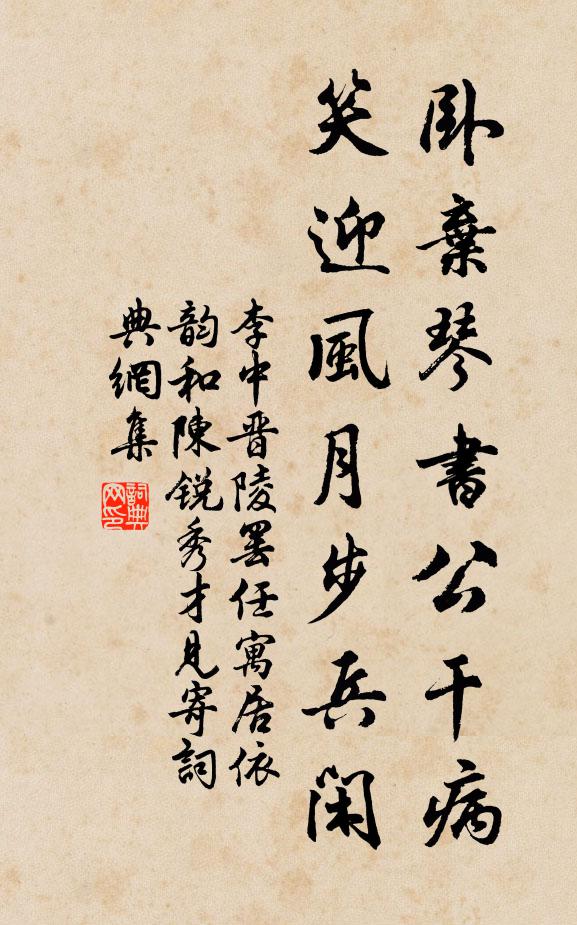 卧棄琴書公干病
笑迎風月步兵閑
李中晋陵罷任寓居依
韵和陳鋭秀才見寄詞
典網集
詞典
网印